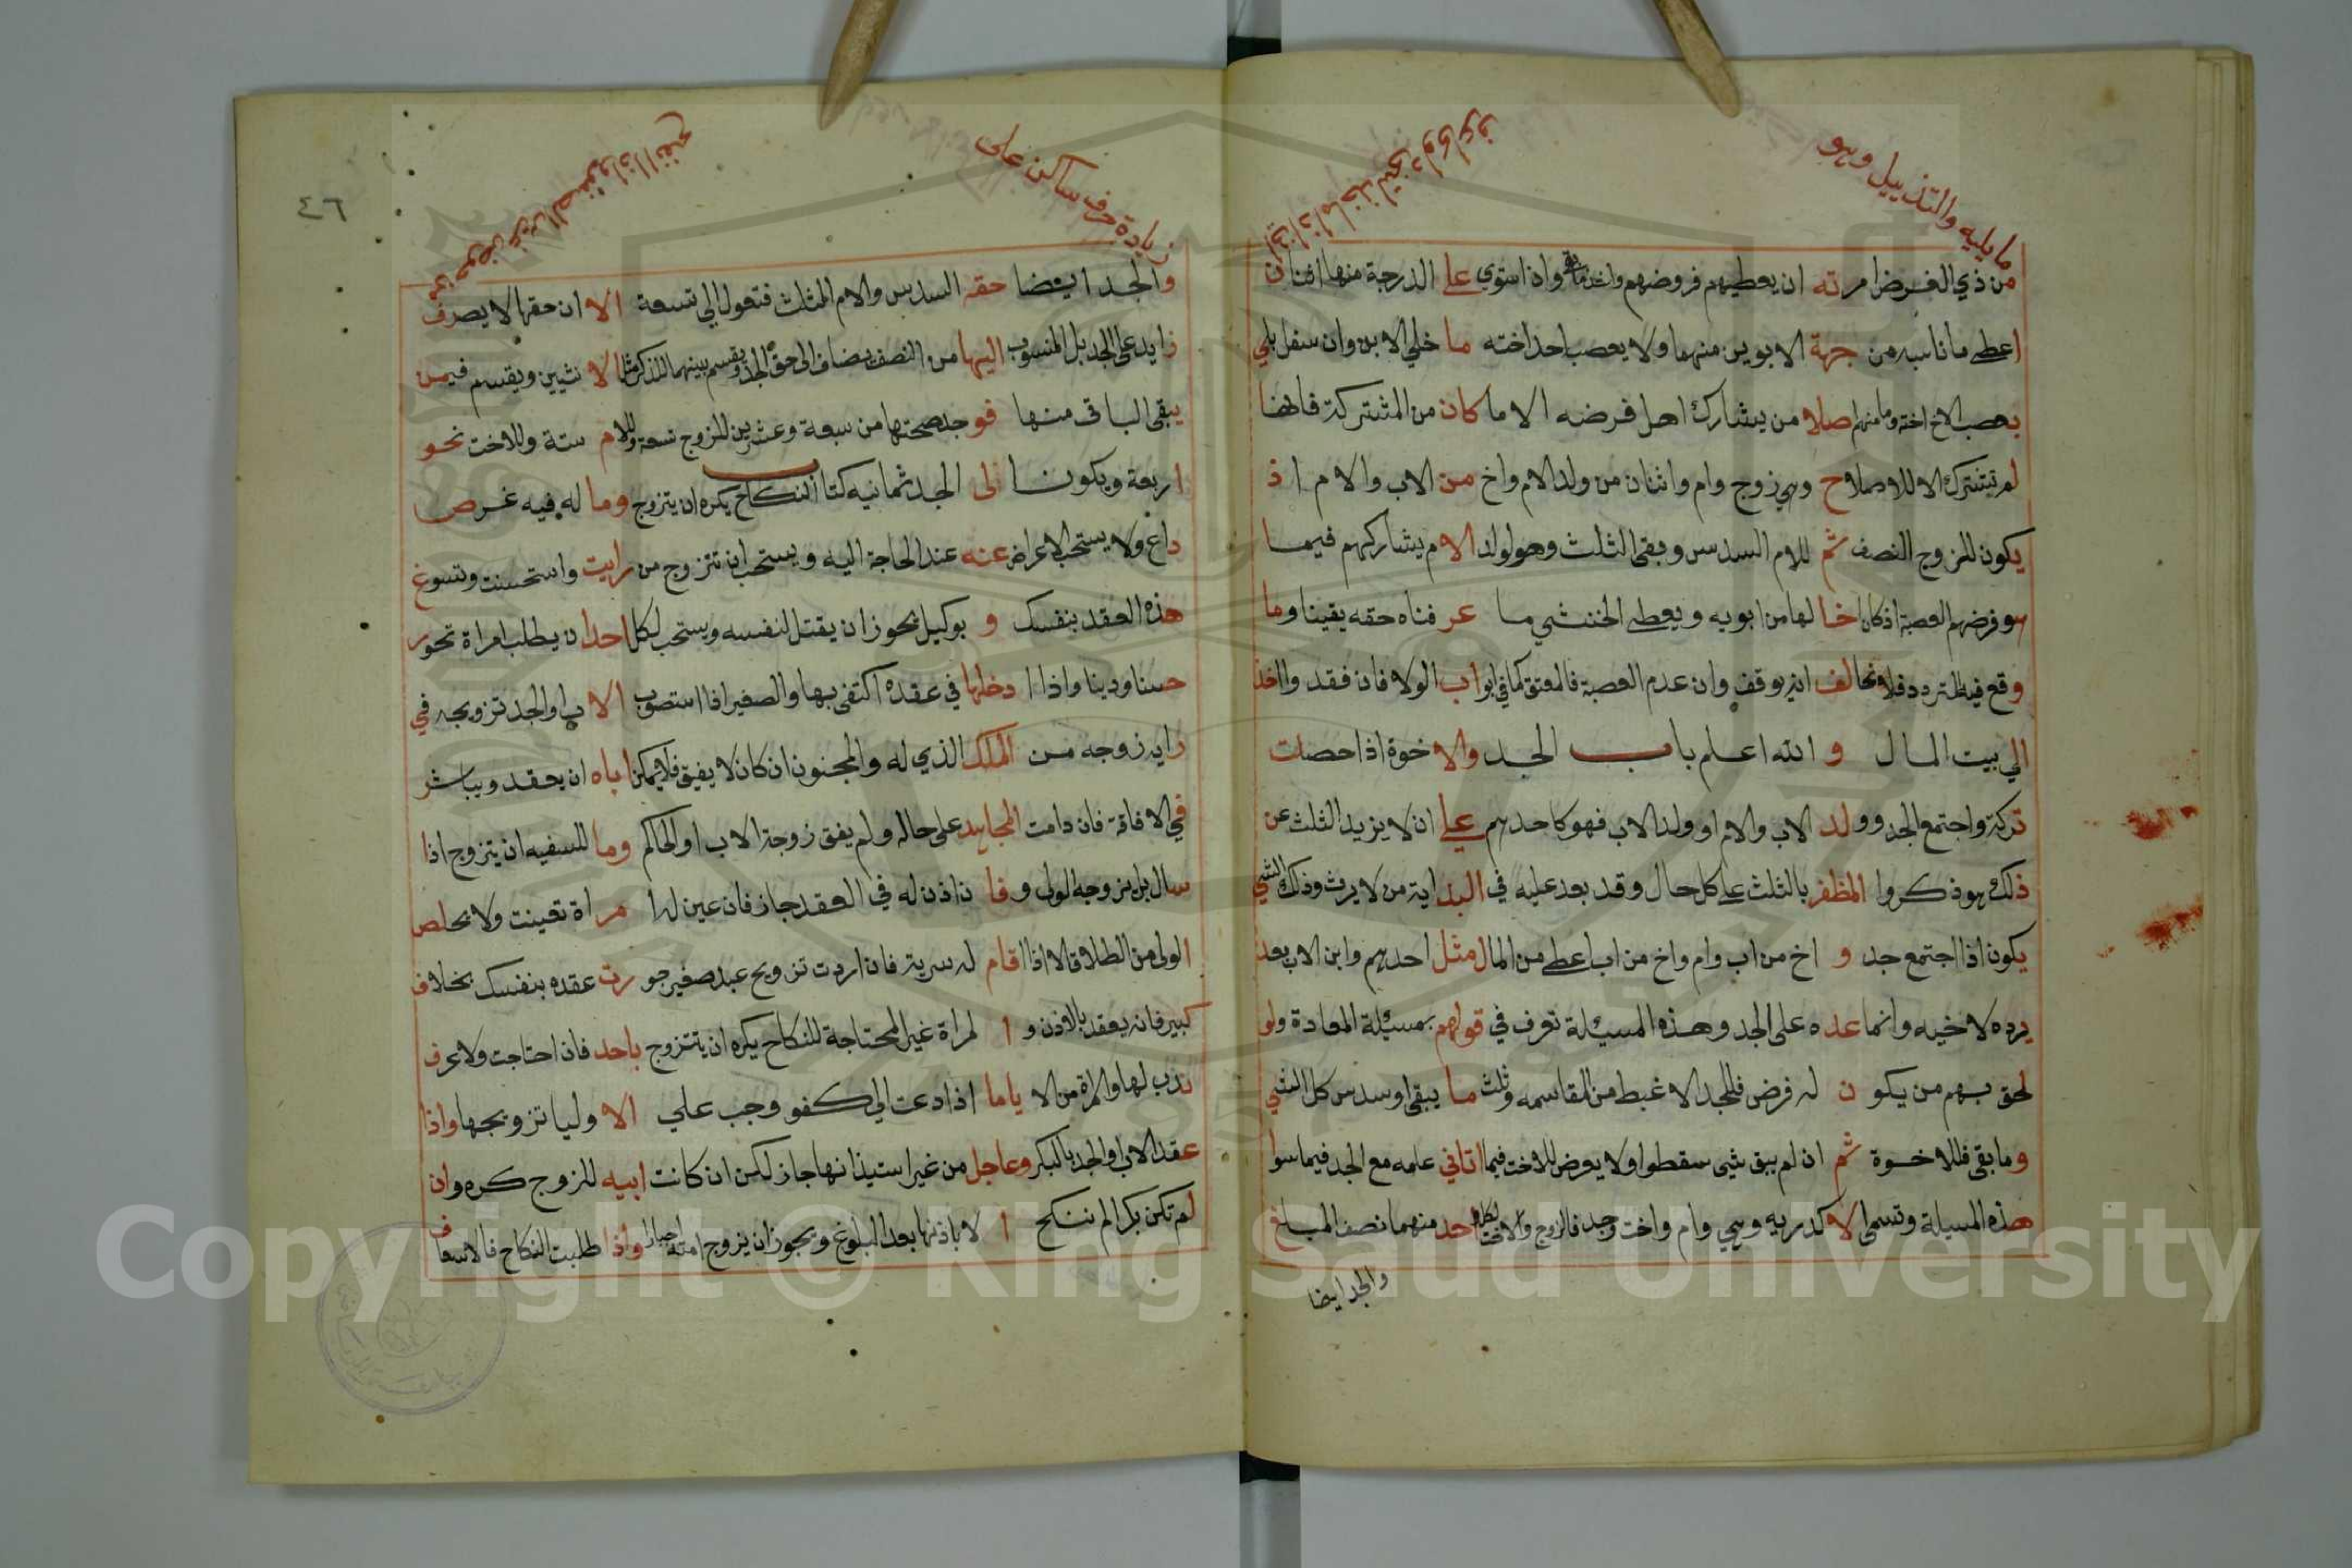 ما يليه والتذييل وهو
من ذي الفرض امرته ان يعطيهم فروضهم واذا استوي علا الدرجة منها اثنان
اعطي ما ناسبه من جهة الابوين منهما ولا يعصب احد اخته ما خلي الابن وان سفل بلي
يعصب الاخ اخته وما منهم اصلا من يشارك اهل فرضه الا ما كان من المشتركة فانها
لم تشترك الا للاصلاح وهي زوج وام واثنان من ولد الام واخ من الاب والام اذ
يكون للزوج النصف ثم للام السدس وبقي الثلث وهو لولد الام يشاركهم فيما
هو فرضهم العصبة اذ كان اخا لها من ابويه ويعطي الخنثي ما عرفناه حقه يقينا وما
وقع فيه التردد فلا نخالف انه يوقف وان عدم العصبة فالمعتق كما في ابواب الولا فان فقد والخذ
الي بيت المال والله اعلم باب الجد والاخوة اذا حصلت
تركة واجتمع الجد وولد الاب والام او ولد الاب فهو كاحدهم علي ان لا يزيد الثلث عن
ذلك هو ذكروا المظفر بالثلث علي كل حال وقد يعد عليه في البداية من لا يرث وذلك الشي
يكون اذا اجتمع جد واخ من اب وام واخ من اب اعطي من المال مثل احدهم وابن الاب يعد
يرده لاخيه وانما عده على الجد وهذه المسيلة تعرف في قولهم بمسيلة المعادة ولو
لحق بهم من يكون له فرض فللجد الاغبط من المقاسمه وثلث ما يبقي او سدس كل الشي
وما بقي فللاخوة ثم ان لم يبق شي سقطوا ولا يعرض للاخت فيما اتاني علمه مع الجد فيما سوا
هذه المسيلة وتسمى الاكدريه وهي وام واخت وجد فالزوج والاخت لكل احد منهما نصف المبلغ
والجد ايضا
زيادة حرف ساكن على
والجد ايضا حقه السدس والام الثلث فتعول الي تسعة الا ان حقها لا يصرف
زايد على الجد بل المنسوب اليها من النصف يضاف الى حق الجد ويقسم بينهما للذكر مثل الانثيين ويقسم فيمن
يبقي الباقي منها فوجد صحتها من سبعة وعشرين للزوج تسعة وللام ستة وللاخت نحو
اربعة ويكون الى الجد ثمانيه كتاب النكاح يكره ان يتزوج وما له فيه غرض
داع ولا يستحب الاعراض عنه عند الحاجة اليه ويستحب ان تتزوج من رايت واستحسنت وتسوغ
هذه العقد بنفسك وبوكيل يجوز ان يقتل لنفسه ويستحب لكل احد ان يطلب امراة تحور
حسنا ودينا واذا ادخلها في عقده اكتفى بها والصغير اذا استصوب الاب او الجد تزويجه في
رايه زوجه من الملك الذي له والمجنون ان كان لا يفيق فلا يمكن اباه ان يعقد ويباشر
في الافاقة فان دامت المجانبة على حاله ولم يفق زوجة الاب او الحاكم وما للسفيه ان يتزوج اذا
سال بل يزوجه الولي وفان اذن له في العقد جاز فان عين لها مراة تعينت ولا يخلص
الولي من الطلاق الا اذا اقام له سرية فان اردت تزويج عبد صغير جورت عقده بنفسك بخلاف
كبير فانه يعقد بالاذن والمراة غير المحتاجة للنكاح يكره ان يتتزوج باحد فان احتاجت ولا عرف
ندب لها والمراة من الاياما اذا دعت الي كفو وجب علي الاوليا تزويجها واذا
عقد الاب او الجد بالبكر وعاجل من غير استيذانها جاز لكن ان كانت ابيه للزوج كره وان
لم تكن بكرا لم تنكح الا باذنها بعد البلوغ ويجوز ان يزوج امته اجبارا واذا طلبت النكاح فالاسعاف
٤٦
Copyright © King Saud University